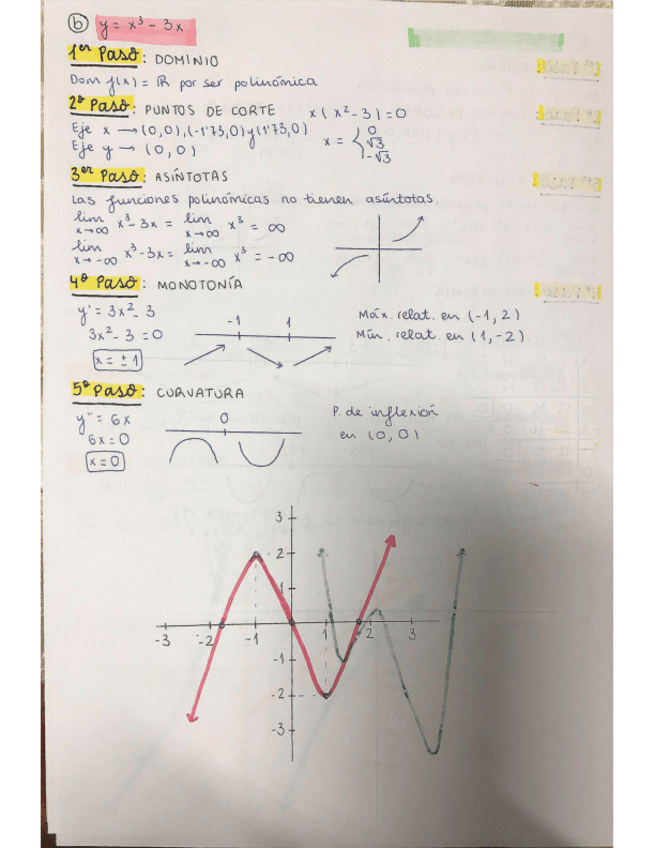 b) y = x³ - 3x
1er Paso: DOMINIO
Dom f(x) = ℝ por ser polinómica
2º Paso: PUNTOS DE CORTE x(x²-3)=0
Eje x → (0,0),(-1'73,0)y(1'73,0) x = { 0 √3 -√3
Eje y → (0,0)
3er Paso: ASÍNTOTAS
Las funciones polinómicas no tienen asíntotas.
lim x→∞ x³-3x = lim x→∞ x³ = ∞
lim x→-∞ x³-3x = lim x→-∞ x³ = -∞
4º Paso: MONOTONÍA
y' = 3x²-3 -1 1 Máx. relat. en (-1,2)
3x²-3=0 Mín. relat. en (1,-2)
x = ±1
5º Paso: CURVATURA
y'' = 6x 0 P. de inflexión
6x=0 en (0,0)
x=0
3
2
1
-3 -2 -1 1 2 3
-1
-2
-3